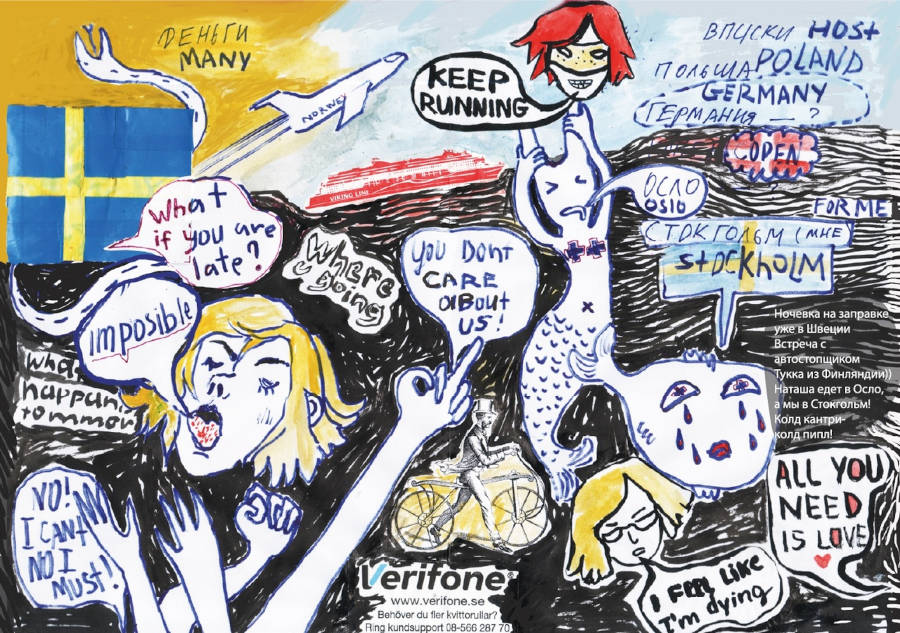 ДЕНЬГИ
MANY
NORWEY
KEEP
RUNNING
ВПУСКИ HOST
ПОЛЬША POLAND
GERMANY
ГЕРМАНИЯ — ?
COPEN
VIKING LINE
What
if you are
late?
Where
going
YOU DONT
CARE
about
US!
ОСЛО
OSLO
FOR ME
СТОКГОЛЬМ (МНЕ)
STOCKHOLM
imposible
What
happan
tommorow
Ночевка на заправке
уже в Швеции
Встреча с
автостопщиком
Тукка из Финляндии))
Наташа едет в Осло,
а мы в Стокгольм!
Колд кантри-
колд пипл!
NO!
I CANT
NO I
MUST!
ALL YOU
NEED
IS LOVE
I FEEL LIKE
I'm dying
Verifone
www.verifone.se
Behöver du fler kvittorullar?
Ring kundsupport 08-566 287 70